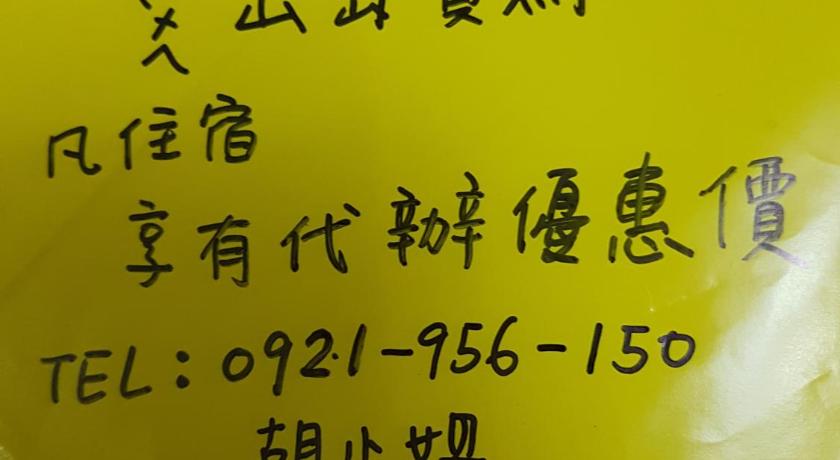 凡住宿
享有代辦優惠價
TEL: 0921-956-150
胡小姐